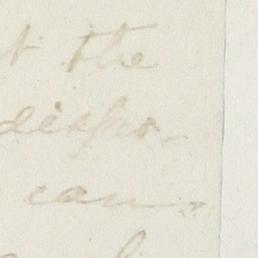 the
dispo-
can-